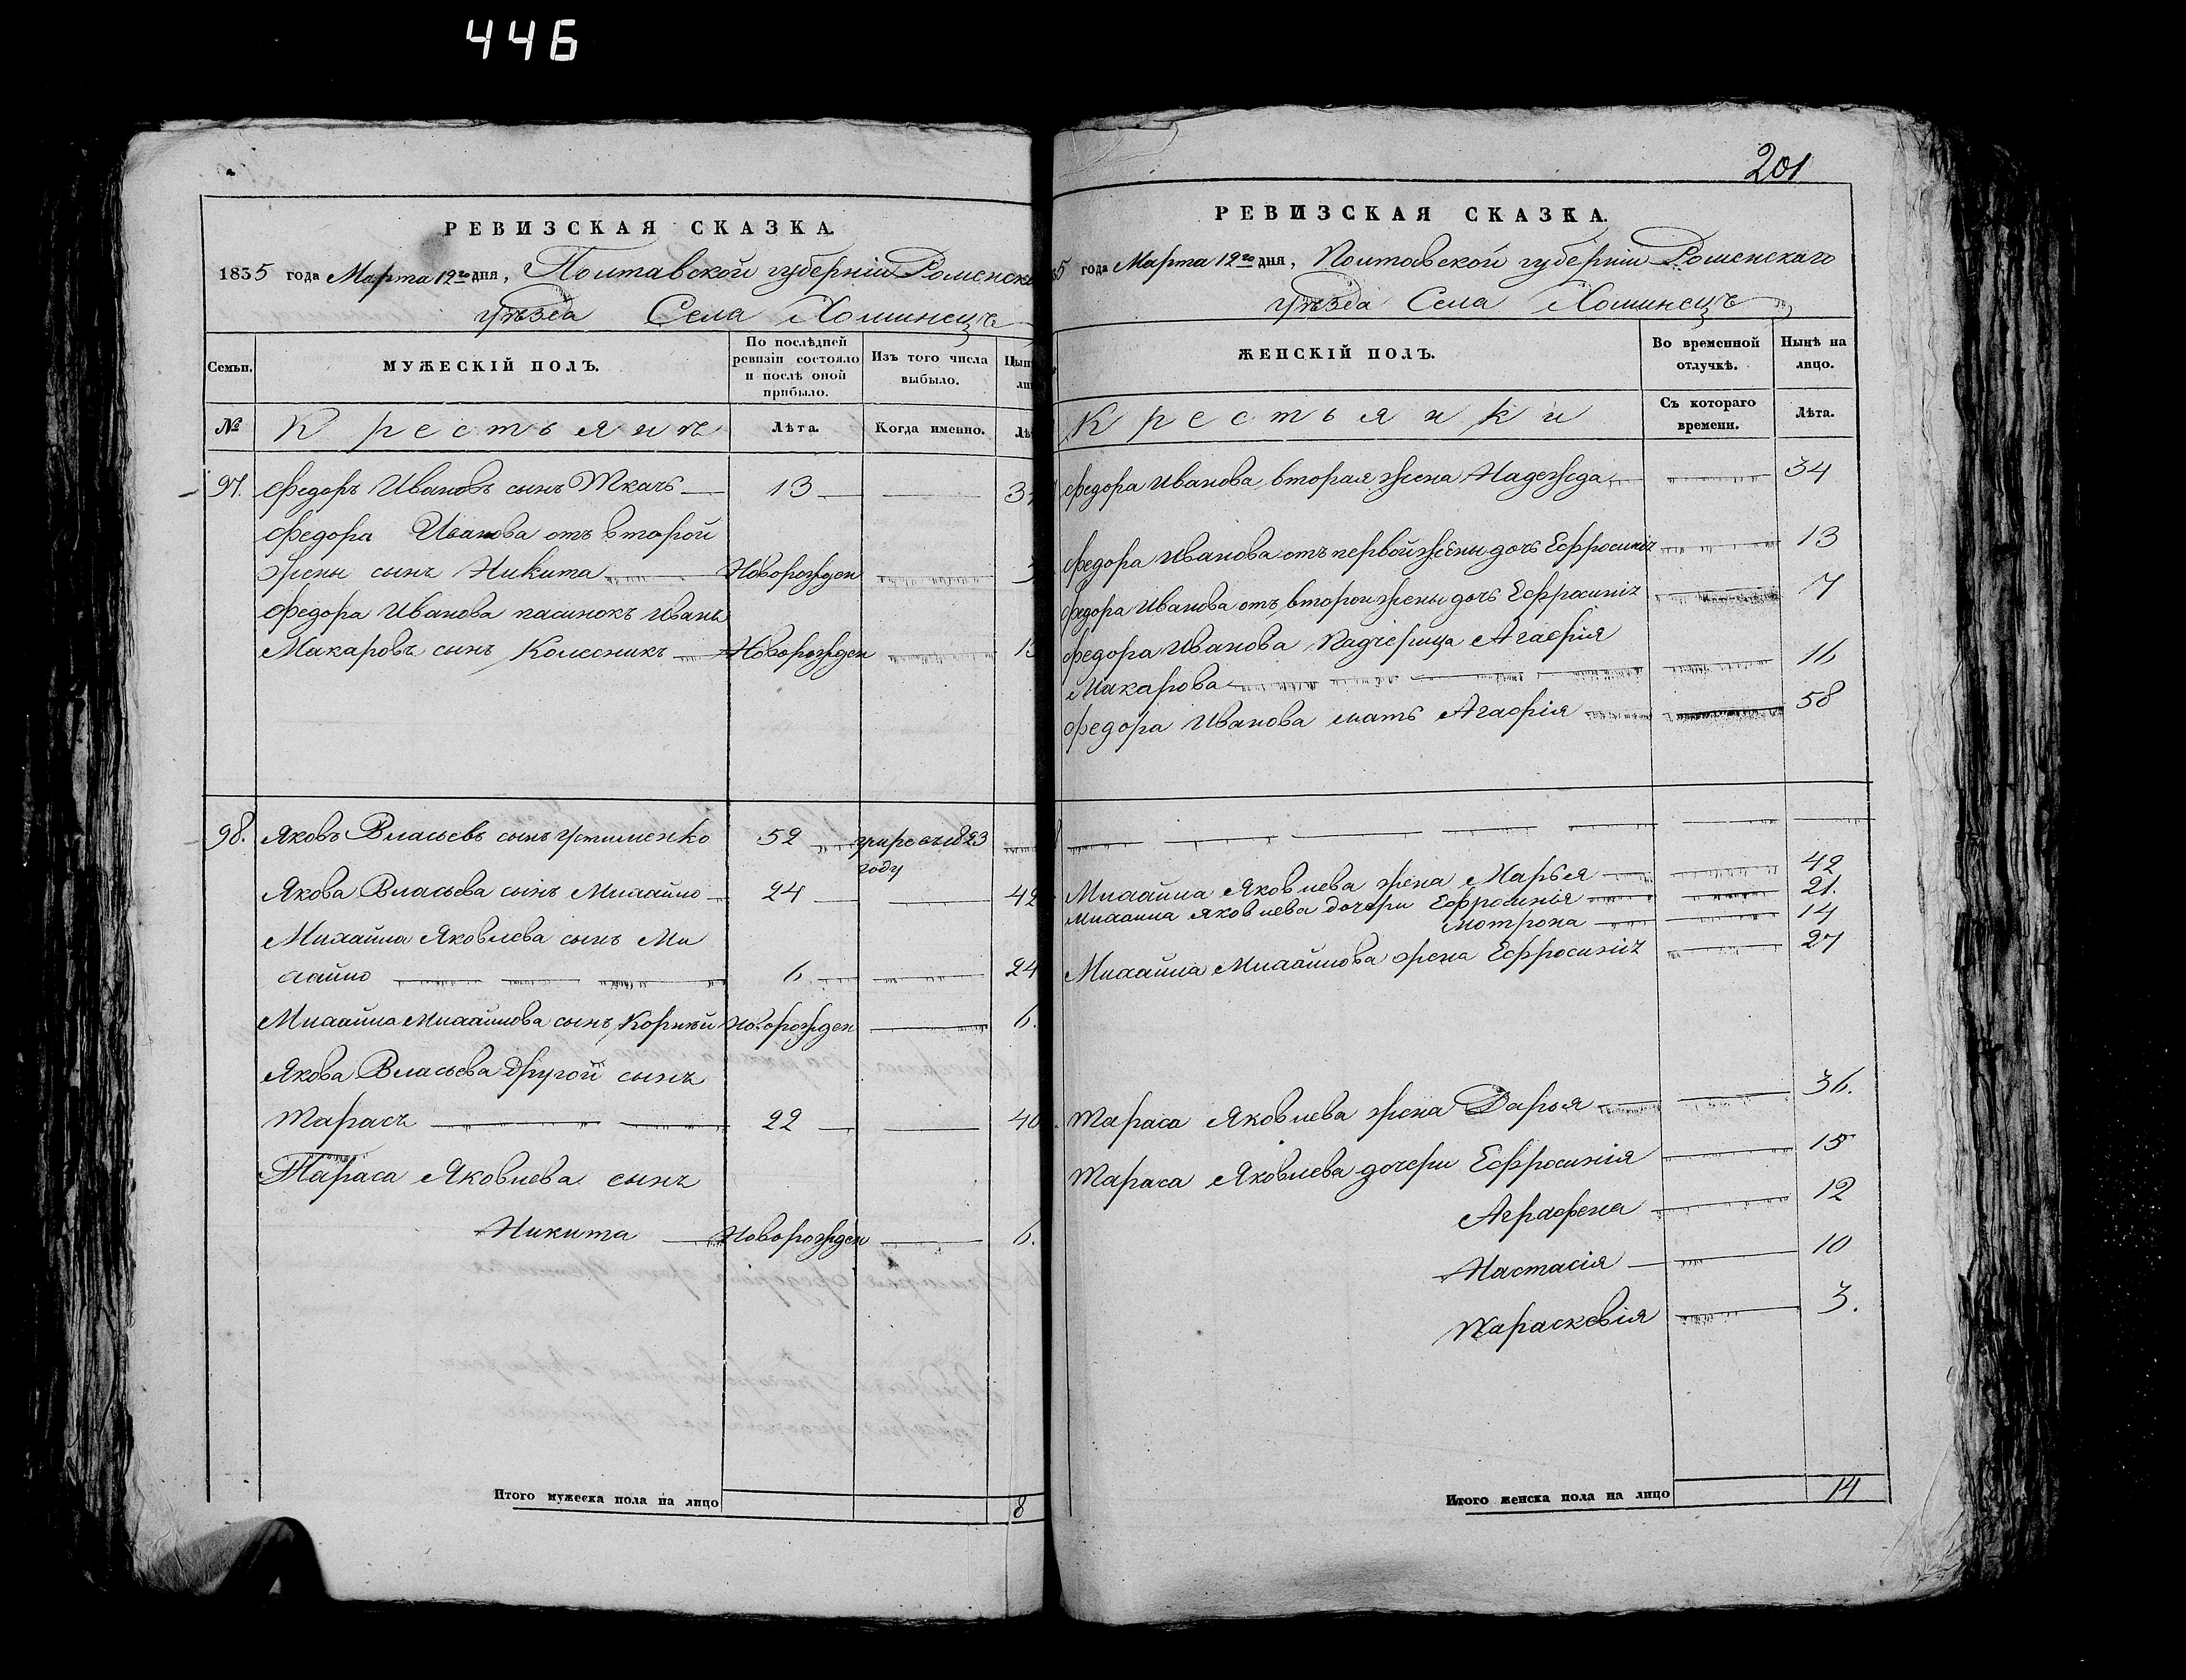 446
РЕВИЗСКАЯ СКАЗКА.
1835 года Марта 12го дня, Полтавской губернiи Роменска
уѣзда Села Хоминецъ
Семьи.
МУЖЕСКIЙ ПОЛЪ.
По послѣдней
ревизiи состояло
и послѣ оной
прибыло.
Изъ того числа
выбыло.
№
Крестьянъ
Лѣта.
Когда именно.
97. Федоръ Ивановъ сынъ Ткачь 13
Федора Иванова отъ второй
жены сынъ Никита Новорожден
Федора Иванова пасинокъ Иванъ
Макаровъ сынъ Колесникъ Новорожден
98. Яковъ Власьевъ сынъ Устименко 52 умре въ 1823
году
Якова Власьева сынъ Михайло 24 42
Михайла Яковлева сынъ Ми
хайло 6 24
Михайла Михайлова сынъ Корнѣй Новорожден 6.
Якова Власьева другой сынъ
Тарасъ 22 40
Тараса Яковлева сынъ
Никита Новорожден 6.
Итого мужеска пола на лицо 8
201
РЕВИЗСКАЯ СКАЗКА.
5 года Марта 12го дня, Полтавской губернiи Роменскаго
уѣзда Села Хоминецъ
ЖЕНСКIЙ ПОЛЪ.
Во временной
отлучкѣ.
Нынѣ на
лицо.
Крестьянки
Съ котораго
времени.
Лѣта.
Федора Иванова вторая жена Надежда 34
Федора Иванова отъ первой жены дочь Ефросинiя 13
Федора Иванова отъ второй жены дочь Ефросинiя 7
Федора Иванова Падчерица Агафiя
Макарова 16
Федора Иванова мать Агафiя 58
Михайла Яковлева жена Марья 42
Михайла Яковлева дочери Ефросинiя 21.
Мотрона 14
Михайла Михайлова жена Ефросинiя 27
Тараса Яковлева жена Дарья 36.
Тараса Яковлева дочери Ефросинiя 15
Аграфена 12
Настасiя 10
Параскевiя 3.
Итого женска пола на лицо 14